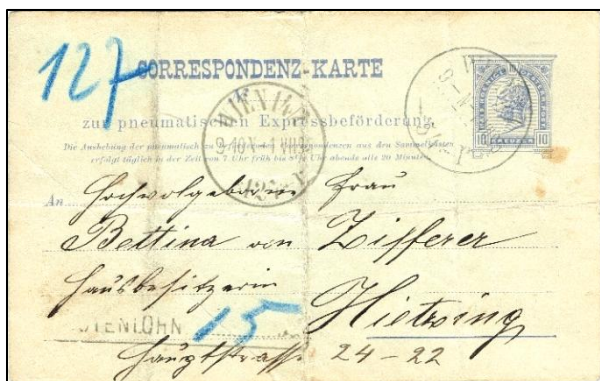 127
CORRESPONDENZ-KARTE
zur pneumatischen Expressbeförderung.
Die Aushebung der pneumatisch zu befördernden Correspondenzen aus den Sammelkästen
erfolgt täglich in der Zeit von 7 Uhr früh bis 9 Uhr abends alle 20 Minuten.
10 10
WIEN
An Hochwolgeborne Frau
Bettina von Zifferer
Hausbesitzerin
15 Hietzing
Hauptstrasse 24-22